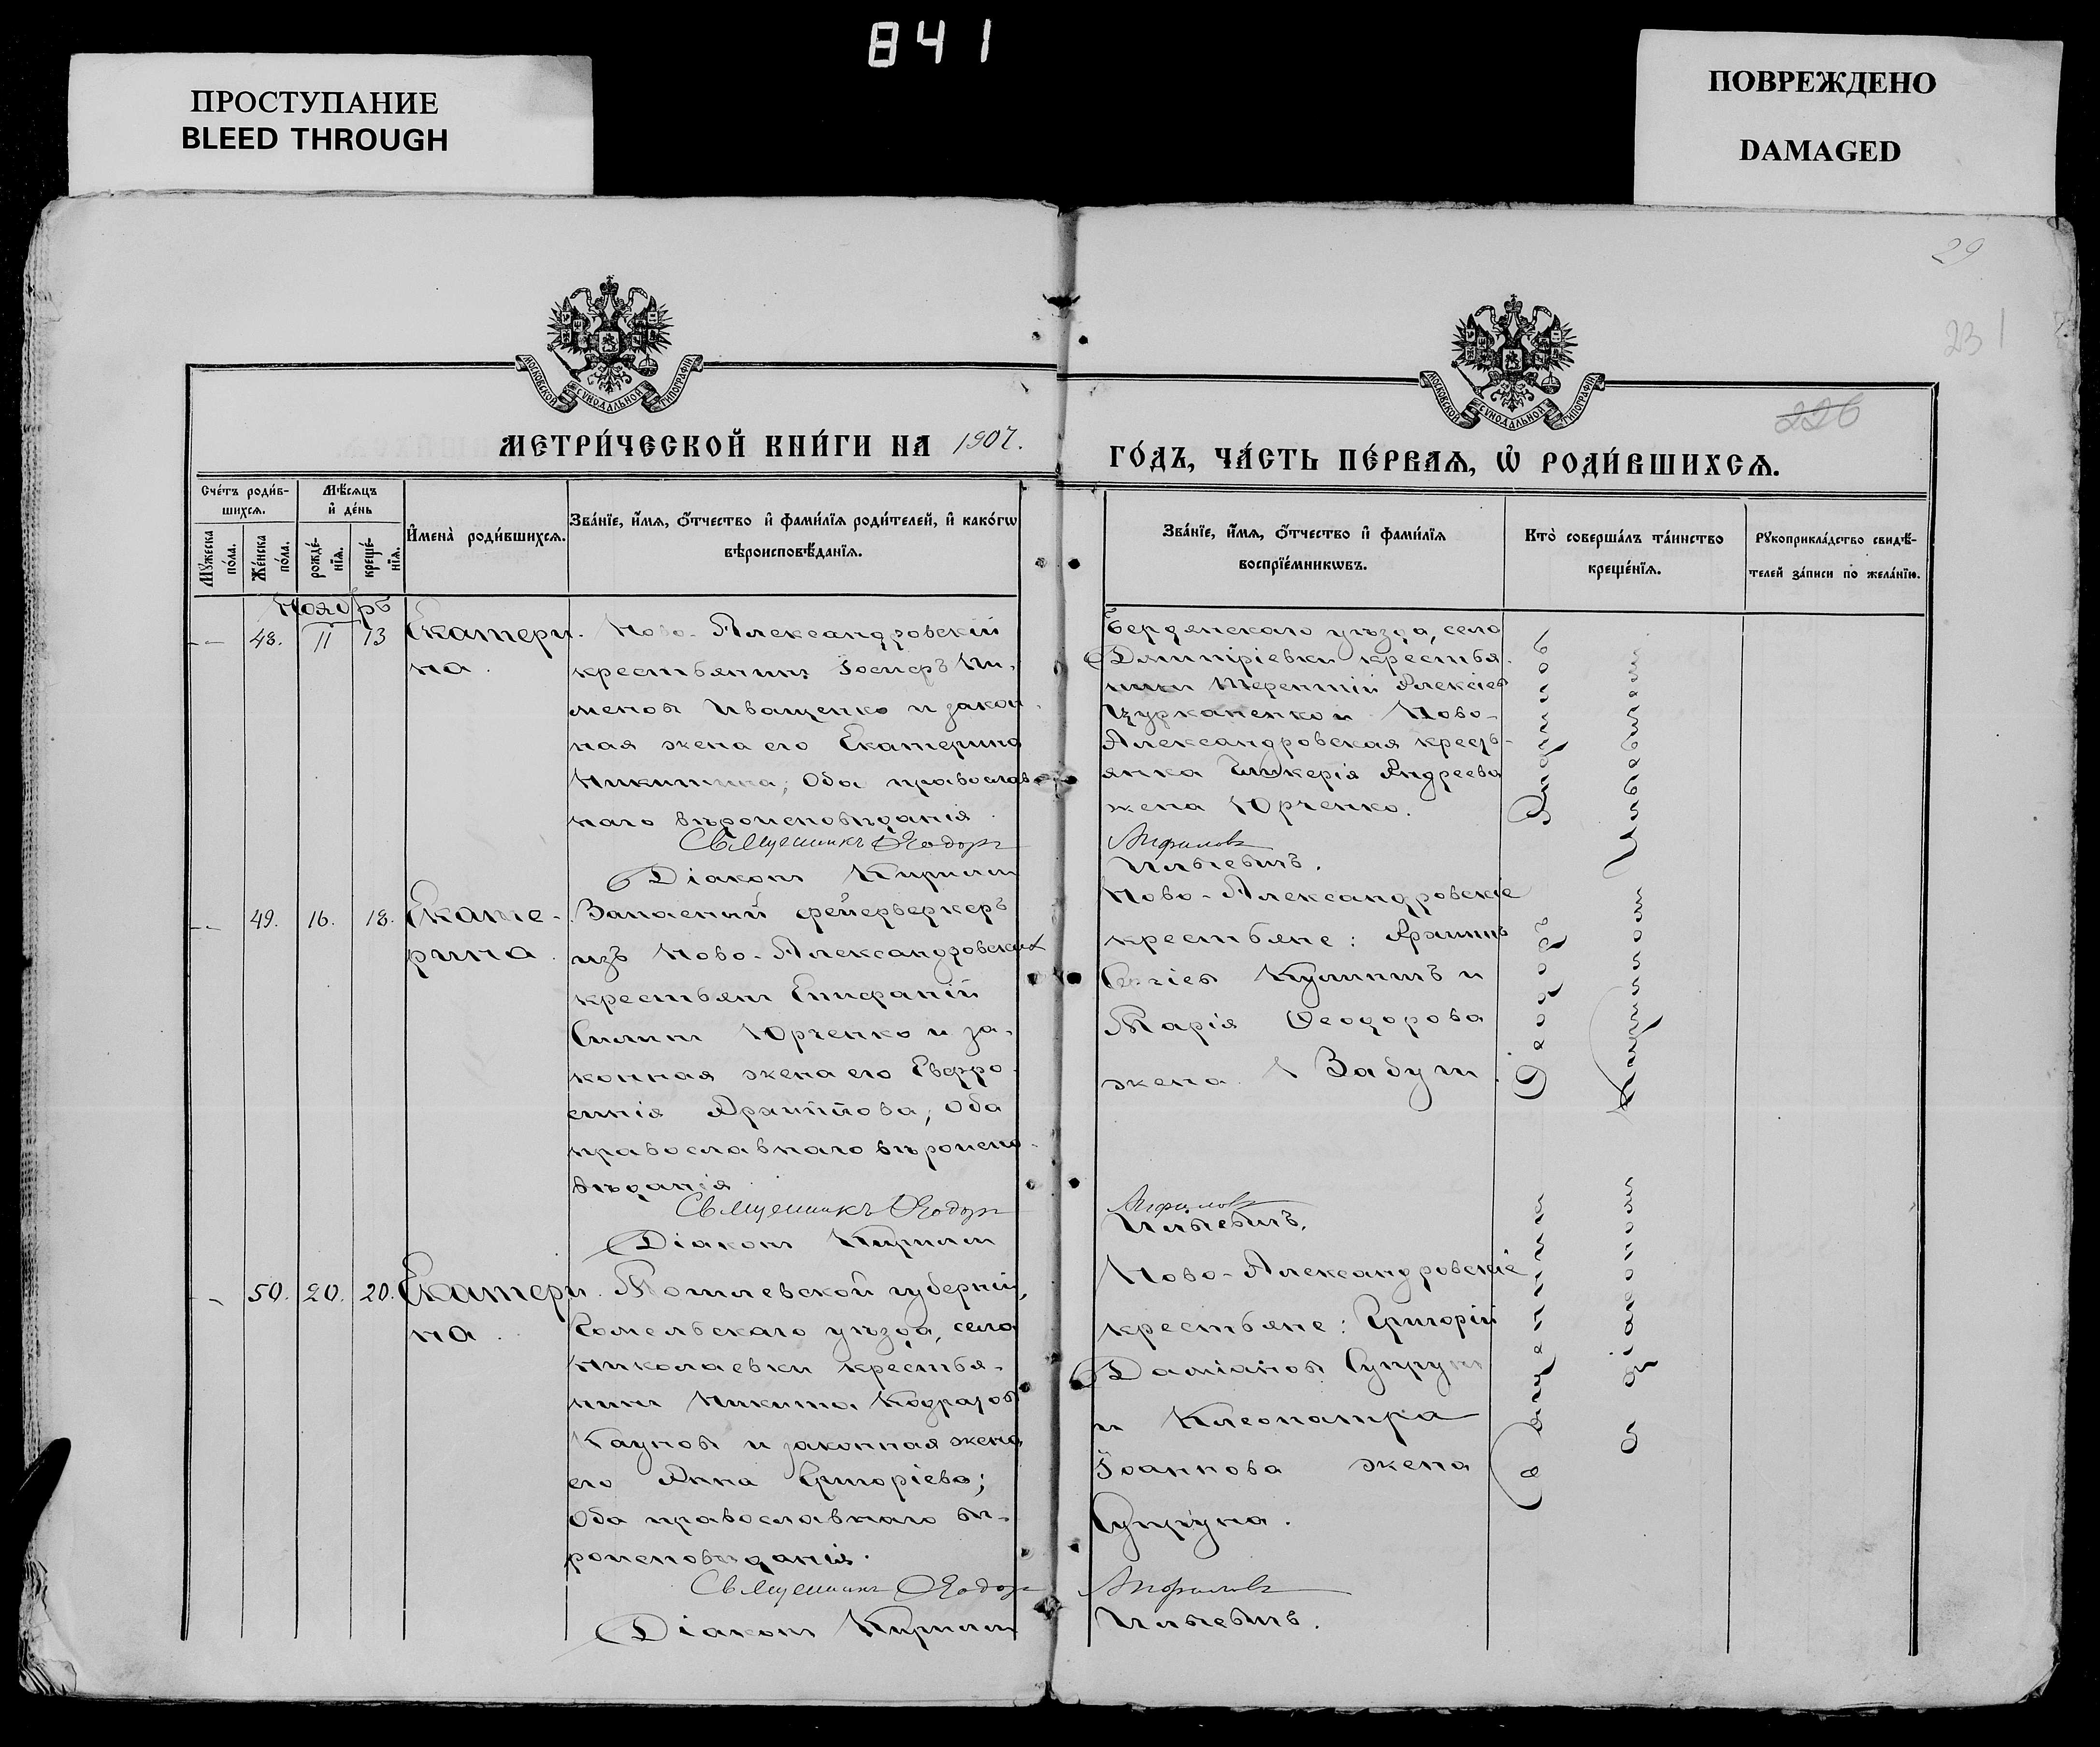 841
ПРОСТУПАНИЕ
BLEED THROUGH
ПОВРЕЖДЕНО
DAMAGED
29
231
226
МОСКОВСКОЙ СѴНОДАЛЬНОЙ ТИПОГРАФІИ
МОСКОВСКОЙ СѴНОДАЛЬНОЙ ТИПОГРАФІИ
МЕТРИ́ЧЕСКОЙ КНИ́ГИ НА 1907.
ГО́ДЪ, ЧА́СТЬ ПЕ́РВАѦ, Ѡ҆ РОДИ́ВШИХСѦ.
Сче́тъ роди́в-
шихсѧ.
Мѣ́сѧцъ
и҆ де́нь
Мꙋ́жеска
по́ла.
Же́нска
по́ла.
рожде́-
нїѧ.
креще́-
нїѧ.
И҆мена̀ роди́вшихсѧ.
Зва́нїе, и҆́мѧ, ѻ҆́тчество и҆ фами́лїѧ роди́телей, и҆ како́гѡ
вѣроисповѣ́данїѧ.
Зва́нїе, и҆́мѧ, ѻ҆́тчество и҆ фами́лїѧ
воспрїе́мникѡвъ.
Кто̀ соверша́лъ та́инство
креще́нїѧ.
Рꙋкоприкла́дство свидѣ́-
телей за́писи по жела́нїю.
Ноябрь
48. 11 13 Екатери-
на.
Ново-Александровскій
крестьянинъ Іосифъ Пи-
меновъ Иващенко и закон-
ная жена его Екатерина
Никитина, оба православ-
наго вѣроисповѣданія.
Священникъ Ѳеодоръ
Діаконъ Кириллъ
Бердянскаго уѣзда, села
Димитріевки крестья-
нинъ Терентій Алексіевъ
Цурканенко и Ново-
Александровская кресть-
янка Гликерія Андреева
жена Юрченко.
Анфиловъ
Ильевичъ.
49. 16. 18. Екате-
рина.
Запасный фейерверкеръ
изъ Ново-Александровскихъ
крестьянъ Епифаній
Силинъ Юрченко и за-
конная жена его Евфро-
синія Архиппова, оба
православнаго вѣроиспо-
вѣданія.
Священникъ Ѳеодоръ
Діаконъ Кириллъ
Ново-Александровскіе
крестьяне: Архиппъ
Сергіевъ Кулиничъ и
Марія Ѳеодорова
жена Забуги.
Анфиловъ
Ильевичъ.
50. 20. 20. Екатери-
на.
Могилевской губерніи,
Гомельскаго уѣзда, села
Николаевки крестья-
нинъ Никита Кодратовъ
Кауновъ и законная жена
его Анна Григоріева;
оба православнаго вѣ-
роисповѣданія.
Священникъ Ѳеодоръ
Діаконъ Кириллъ
Ново-Александровскіе
крестьяне: Григорій
Даміановъ Супрунъ
и Клеопатра
Іоаннова жена
Супруна.
Анфиловъ
Ильевичъ.
Священникъ Ѳеодоръ Анфиловъ
съ діакономъ Кирилломъ Ильевичемъ